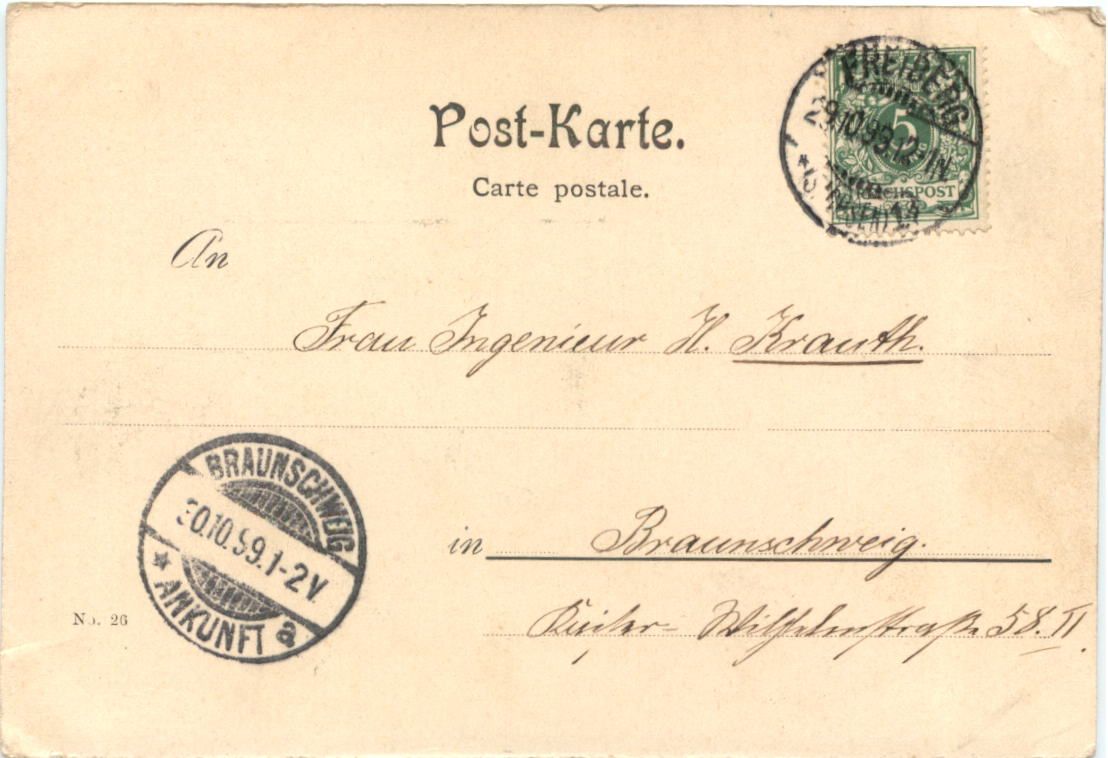 Post-Karte.
Carte postale.
FREIBERG
29.10.99.12-1N
(SACHSEN)
5
REICHSPOST
An
Frau Ingenieur H. Krauth.
BRAUNSCHWEIG
30.10.99.1-2V.
* ANKUNFT a
in Braunschweig.
Kaiser-Wilhelmstraße 58. II.
No. 26